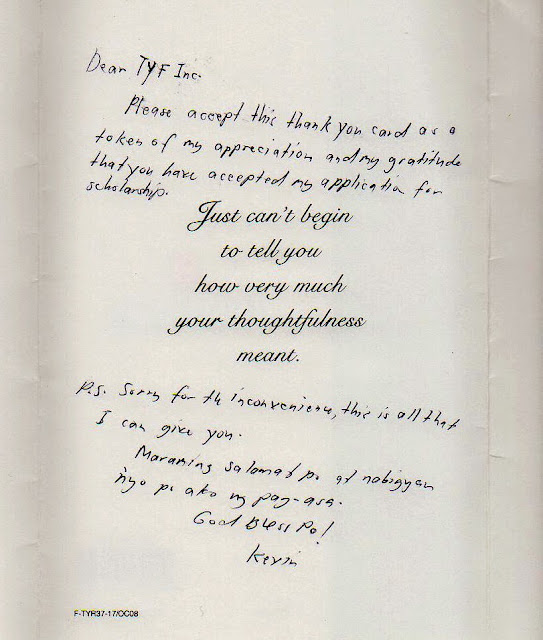 Dear TYF Inc.
Please accept this thank you card as a
token of my appreciation and my gratitude
that you have accepted my application for
scholarship.
Just can't begin
to tell you
how very much
your thoughtfulness
meant.
P.S. Sorry for the inconvenience, this is all that
I can give you.
Maraming salamat po at nabigyan
nyo po ako ng pag-asa.
God Bless Po!
Kevin
F-TYR37-17/OC08